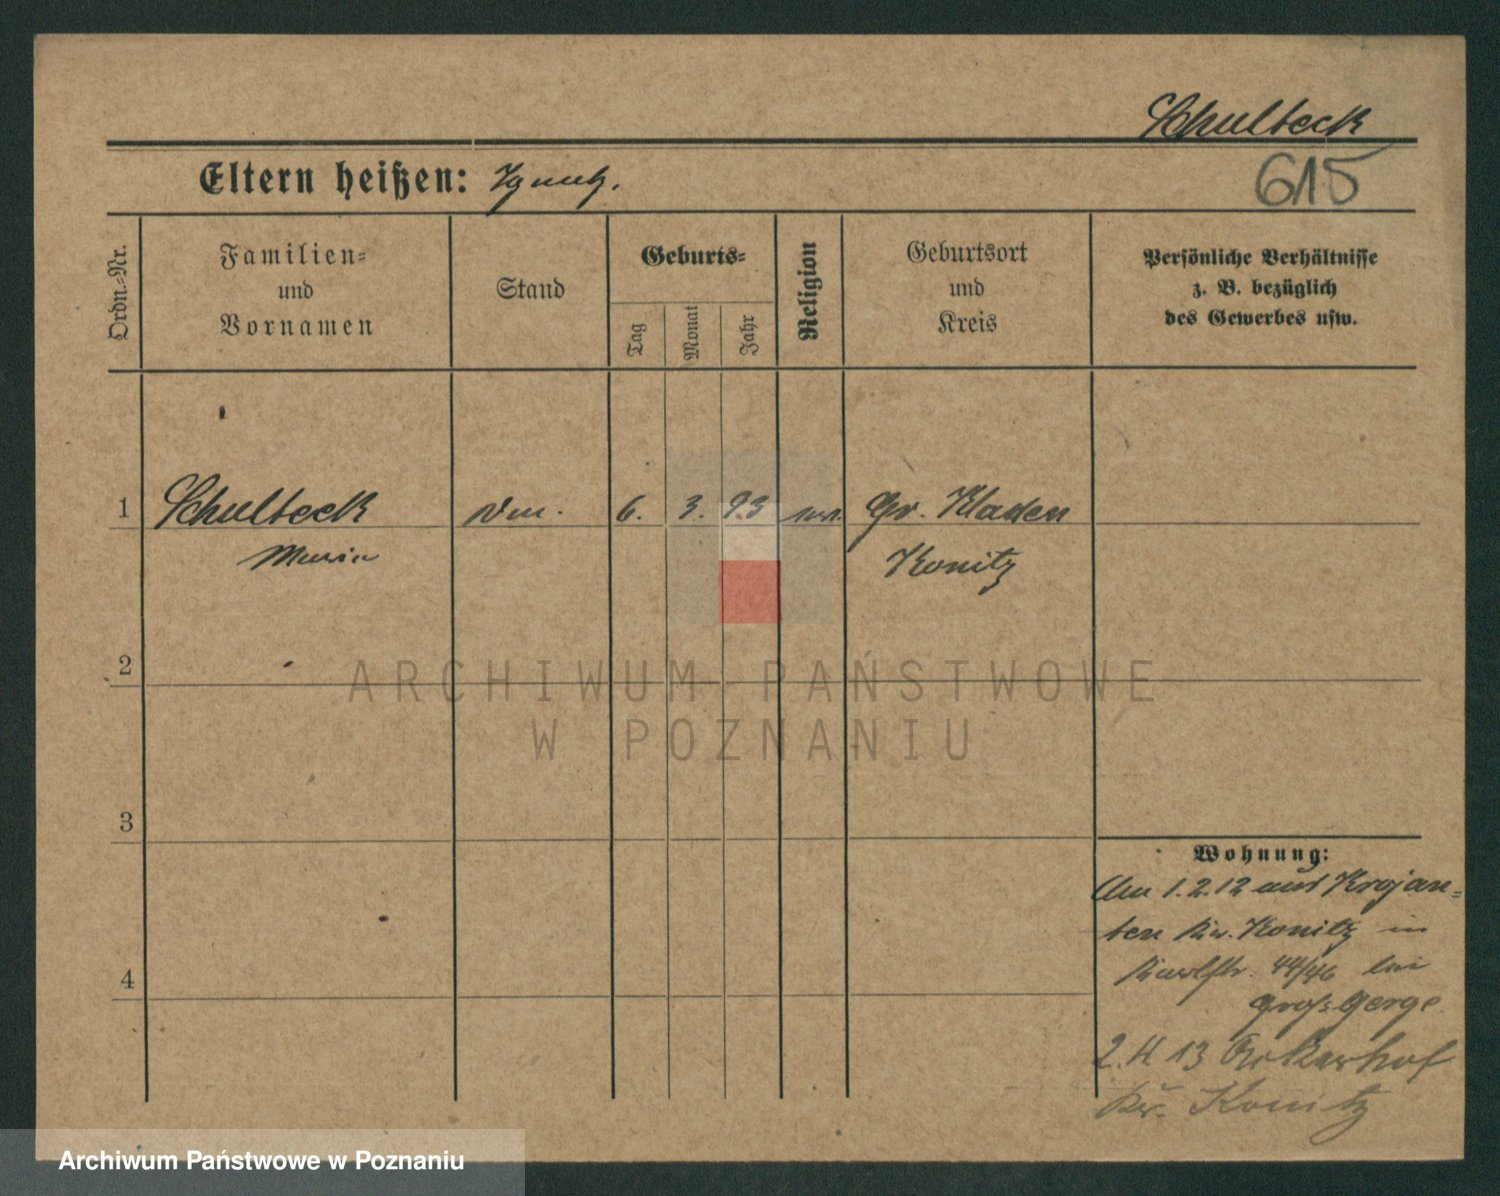 Schulbeck
615
Eltern heißen: Ignatz.
Ordn.-Nr.
Familien-
und
Vornamen
Stand
Geburts-
Tag
Monat
Jahr
Religion
Geburtsort
und
Kreis
Persönliche Verhältnisse
z. B. bezüglich
des Gewerbes usw.
1 Schulbeck 6. 3. 93 Gr. Kladen
Maria Konitz
2
3
4
Wohnung:
Am 1.2.12 aus Krojan-
ten Kr. Konitz in
Karlstr. 44/46 bei
Groß Gerge
2.4.13 Ackerhof
Kr. Konitz
ARCHIWUM PAŃSTWOWE
W POZNANIU
Archiwum Państwowe w Poznaniu